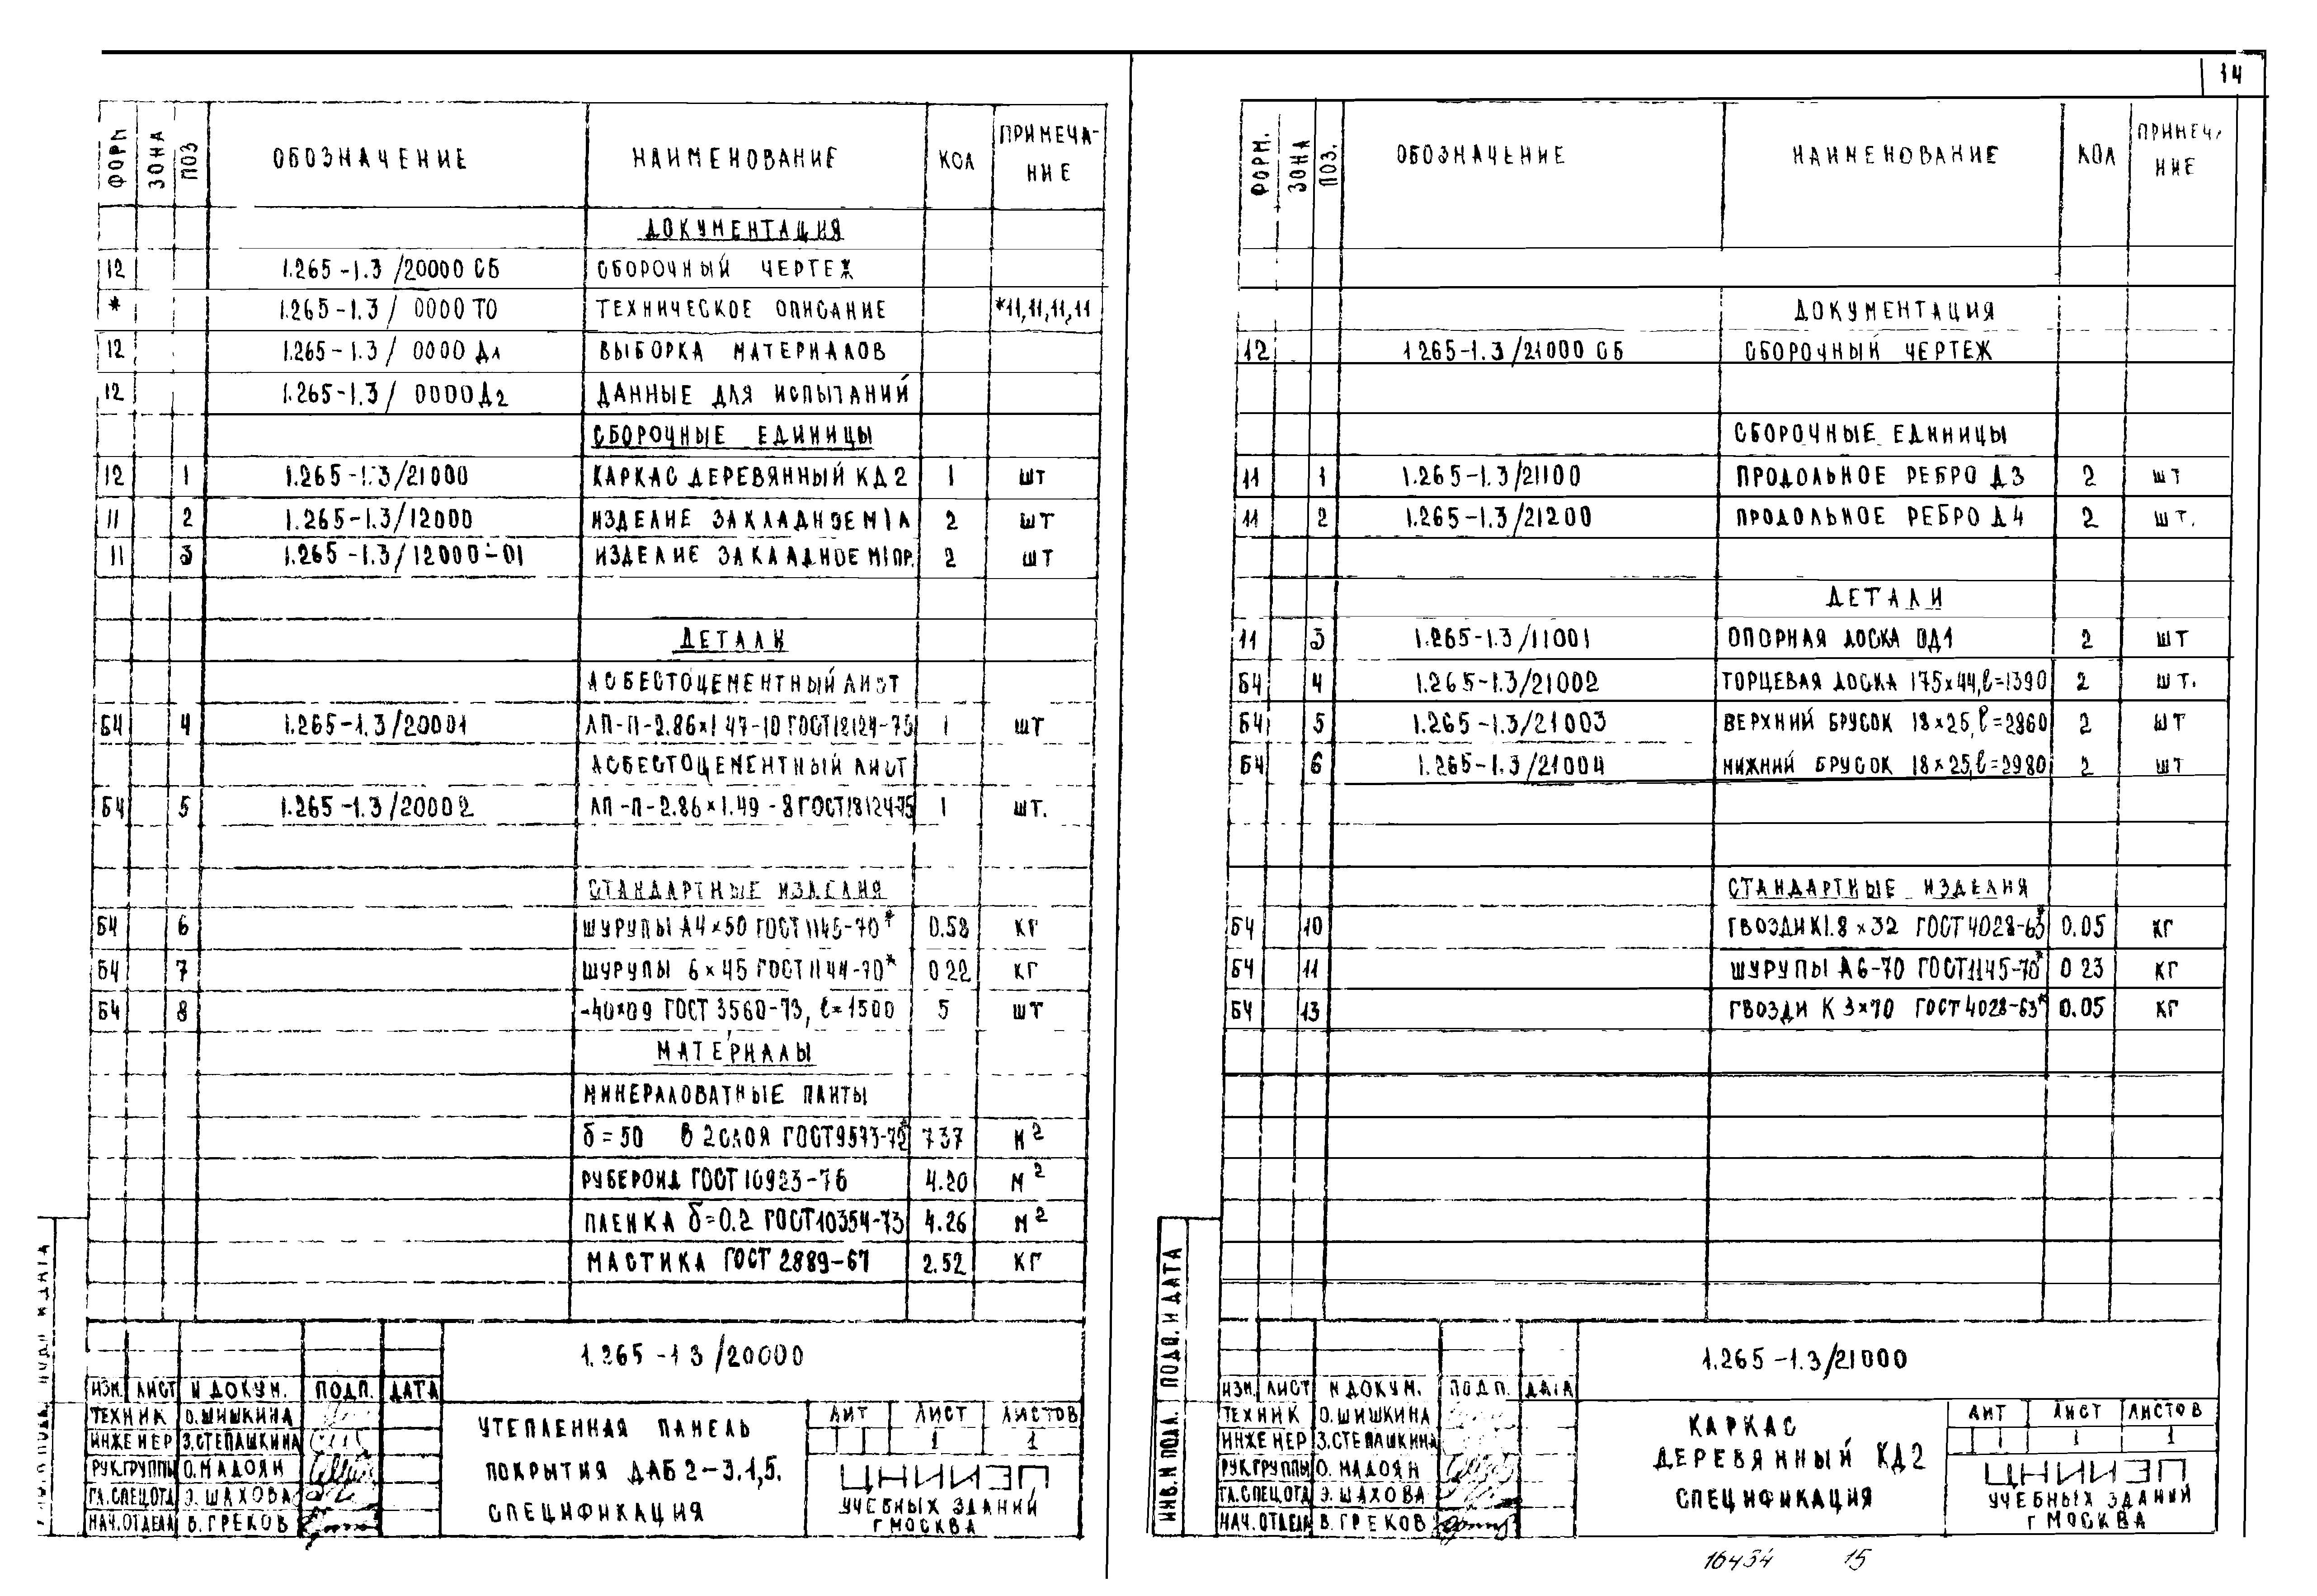 14
ФОРМ ЗОНА ПОЗ ОБОЗНАЧЕНИЕ НАИМЕНОВАНИЕ КОЛ ПРИМЕЧА-
НИЕ
ДОКУМЕНТАЦИЯ
12 1.265-1.3/20000 СБ СБОРОЧНЫЙ ЧЕРТЕЖ
* 1.265-1.3/ 0000 ТО ТЕХНИЧЕСКОЕ ОПИСАНИЕ *11,11,11,11
12 1.265-1.3/ 0000 Д1 ВЫБОРКА МАТЕРИАЛОВ
12 1.265-1.3/ 0000 Д2 ДАННЫЕ ДЛЯ ИСПЫТАНИЙ
СБОРОЧНЫЕ ЕДИНИЦЫ
12 1 1.265-1.3/21000 КАРКАС ДЕРЕВЯННЫЙ КД2 1 ШТ
11 2 1.265-1.3/12000 ИЗДЕЛИЕ ЗАКЛАДНОЕ М1А 2 ШТ
11 3 1.265-1.3/12000-01 ИЗДЕЛИЕ ЗАКЛАДНОЕ М1ПР. 2 ШТ
ДЕТАЛИ
АСБЕСТОЦЕМЕНТНЫЙ ЛИСТ
БЧ 4 1.265-1.3/20001 ЛП-П-2.86×1.47-10 ГОСТ18124-75 1 ШТ
АСБЕСТОЦЕМЕНТНЫЙ ЛИСТ
БЧ 5 1.265-1.3/20002 ЛП-П-2.86×1.49-8 ГОСТ18124-75 1 ШТ.
СТАНДАРТНЫЕ ИЗДЕЛИЯ
БЧ 6 ШУРУПЫ А4×50 ГОСТ 1145-70* 0.58 КГ
БЧ 7 ШУРУПЫ 6×45 ГОСТ 1144-70* 0 22 КГ
БЧ 8 -40×09 ГОСТ 3560-73, ℓ=1500 5 ШТ
МАТЕРИАЛЫ
МИНЕРАЛОВАТНЫЕ ПЛИТЫ
δ=50 В 2 СЛОЯ ГОСТ9573-72* 7 37 М²
РУБЕРОИД ГОСТ 10923-76 4.20 М²
ПЛЕНКА δ=0.2 ГОСТ10354-73 4.26 М²
МАСТИКА ГОСТ 2889-67 2.52 КГ
1.265-1 3/20000
ИЗМ. ЛИСТ N ДОКУМ. ПОДП. ДАТА
ТЕХНИК О.ШИШКИНА
ИНЖЕНЕР З.СТЕПАШКИНА
РУК.ГРУППЫ О.МАДОЯН
ГЛ.СПЕЦ.ОТД Э.ШАХОВА
НАЧ.ОТДЕЛА В.ГРЕКОВ
УТЕПЛЕННАЯ ПАНЕЛЬ
ПОКРЫТИЯ ДАБ 2-3.1,5.
СПЕЦИФИКАЦИЯ
ЛИТ ЛИСТ ЛИСТОВ
1 1
ЦНИИЭП
УЧЕБНЫХ ЗДАНИЙ
Г МОСКВА
ФОРМ. ЗОНА ПОЗ. ОБОЗНАЧЕНИЕ НАИМЕНОВАНИЕ КОЛ ПРИМЕЧА
НИЕ
ДОКУМЕНТАЦИЯ
12 1 265-1.3/21000 СБ СБОРОЧНЫЙ ЧЕРТЕЖ
СБОРОЧНЫЕ ЕДИНИЦЫ
11 1 1.265-1.3/21100 ПРОДОЛЬНОЕ РЕБРО Д3 2 ШТ
11 2 1.265-1.3/21200 ПРОДОЛЬНОЕ РЕБРО Д4 2 ШТ.
ДЕТАЛИ
11 3 1.265-1.3/11001 ОПОРНАЯ ДОСКА ОД1 2 ШТ
БЧ 4 1.265-1.3/21002 ТОРЦЕВАЯ ДОСКА 175×44, ℓ=1390 2 ШТ.
БЧ 5 1.265-1.3/21003 ВЕРХНИЙ БРУСОК 18×25, ℓ=2860 2 ШТ
БЧ 6 1.265-1.3/21004 НИЖНИЙ БРУСОК 18×25, ℓ=2980 2 ШТ
СТАНДАРТНЫЕ ИЗДЕЛИЯ
БЧ 10 ГВОЗДИ К1.8×32 ГОСТ 4028-63* 0.05 КГ
БЧ 11 ШУРУПЫ А6-70 ГОСТ1145-70* 0 23 КГ
БЧ 13 ГВОЗДИ К 3×70 ГОСТ 4028-63* 0.05 КГ
ИНВ.N ПОДЛ. ПОДП. И ДАТА
1.265-1.3/21000
ИЗМ. ЛИСТ N ДОКУМ. ПОДП. ДАТА
ТЕХНИК О.ШИШКИНА
ИНЖЕНЕР З.СТЕПАШКИНА
РУК.ГРУППЫ О.МАДОЯН
ГЛ.СПЕЦ.ОТД Э.ШАХОВА
НАЧ.ОТДЕЛА В.ГРЕКОВ
КАРКАС
ДЕРЕВЯННЫЙ КД2
СПЕЦИФИКАЦИЯ
ЛИТ ЛИСТ ЛИСТОВ
1 1
ЦНИИЭП
УЧЕБНЫХ ЗДАНИЙ
Г МОСКВА
16434 15